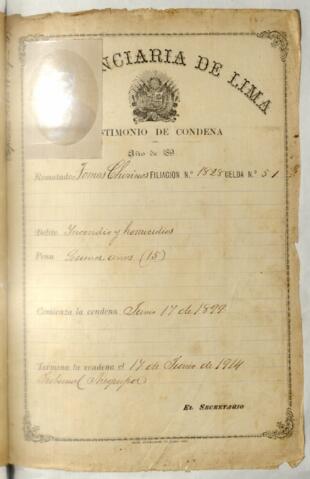 NCIARIA DE LIMA
STIMONIO DE CONDENA
Año de 189
Rematado Tomas Chirinos FILIACIÓN N.° 1828 CELDA N.° 51
Delito Incendio y homicidios
Pena Quince años (15)
Comienza la condena Junio 17 de 1899
Termina la condena el 17 de Junio de 1914
Tribunal Arequipa
EL SECRETARIO